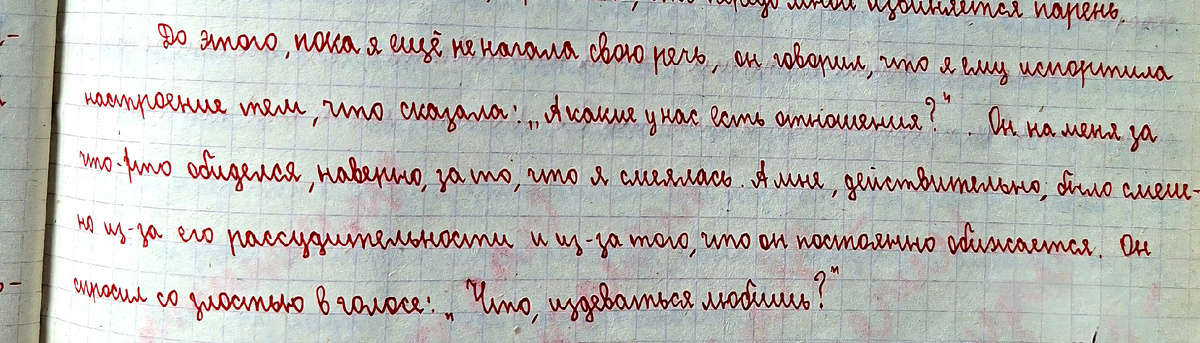 передо мной извиняется парень.
До этого, пока я ещё не начала свою речь, он говорил, что я ему испортила
настроение тем, что сказала: „А какие у нас есть отношения?". Он на меня за
что-то обиделся, наверно, за то, что я смеялась. А мне, действительно, было смеш-
но из-за его рассудительности и из-за того, что он постоянно обижается. Он
спросил со злостью в голосе: „Что, издеваться любишь?"